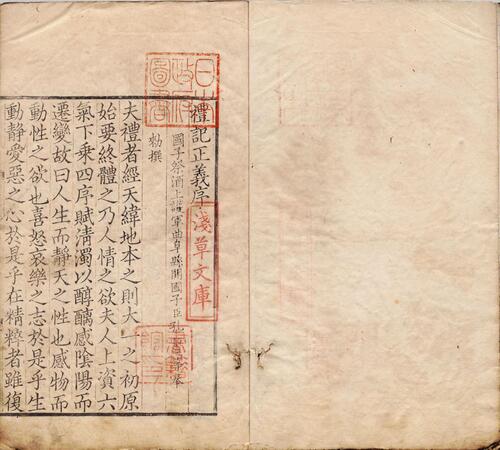 日本政府圖書
淺草文庫
禮記正義序
國子祭酒上護軍曲阜縣開國子臣
勑撰
夫禮者經天緯地本之則大一之初原
始要終體之乃人情之欲夫人上資六
氣下乘四序賦清濁以醇醨感陰陽而
遷變故曰人生而靜天之性也感物而
動性之欲也喜怒哀樂之志於是乎生
動靜愛惡之心於是乎在精粹者雖復